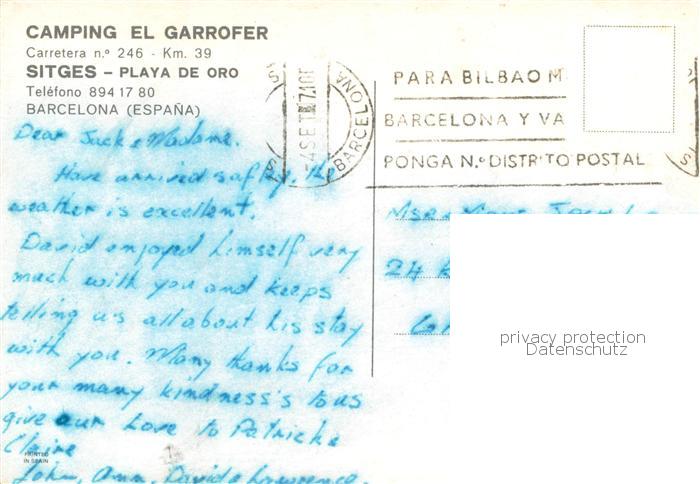 CAMPING EL GARROFER
Carretera n.º 246 - Km. 39
SITGES – PLAYA DE ORO
Teléfono 894 17 80
BARCELONA (ESPAÑA)
Dear Jack & Madame.
Have arrived safley, the
weather is excellent.
David enjoyed himself very
much with you and keeps
telling us all about his stay
with you. Many thanks for
your many kindness's to us
give our Love to Patrick &
Claire
John, Ann, David & Lawrence.
PRINTED
IN SPAIN
BARCELONA
4 SET
PARA BILBAO M
BARCELONA Y VA
PONGA N.º DISTRITO POSTAL
24
privacy protection
Datenschutz